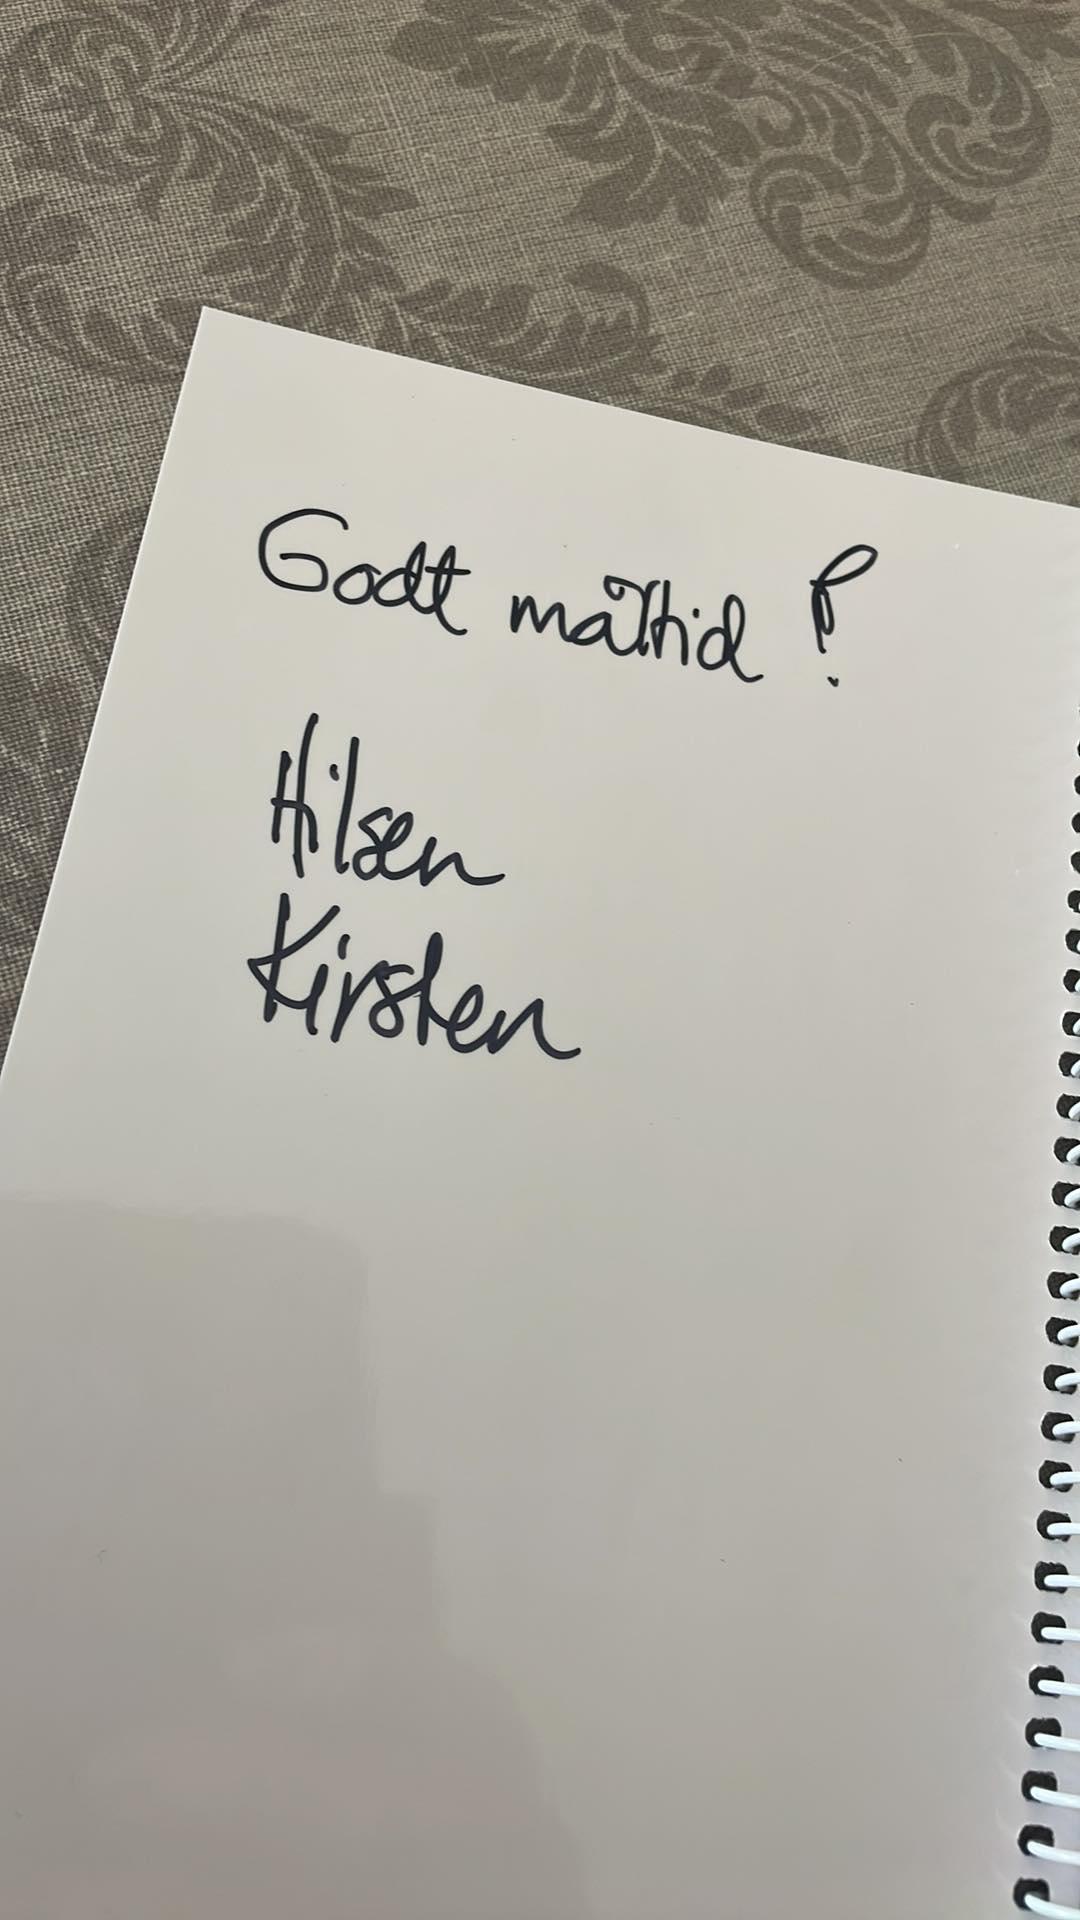 Godt måltid!
Hilsen
Kirsten